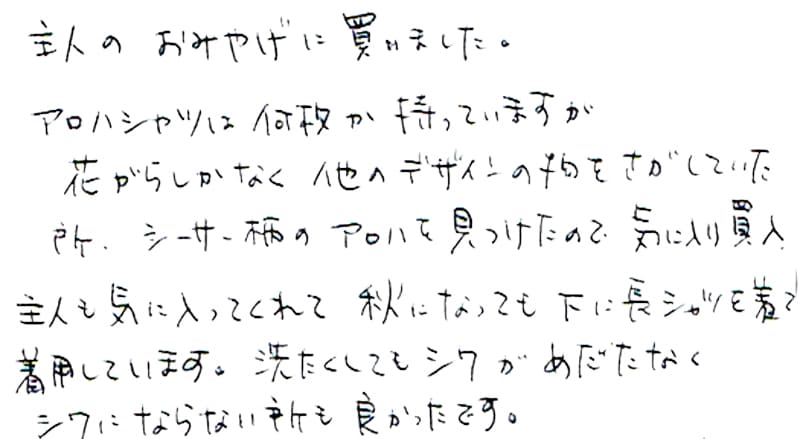 主人の おみやげに 買いました。
アロハシャツは 何枚か 持っていますが
花がらしかなく 他のデザインの物をさがしていた
所、シーサー柄の アロハを見つけたので 気に入り買入
主人も気に入ってくれて 秋になっても 下に長シャツを着て
着用しています。洗たくしてもシワがめだたなく
シワにならない所も良かったです。